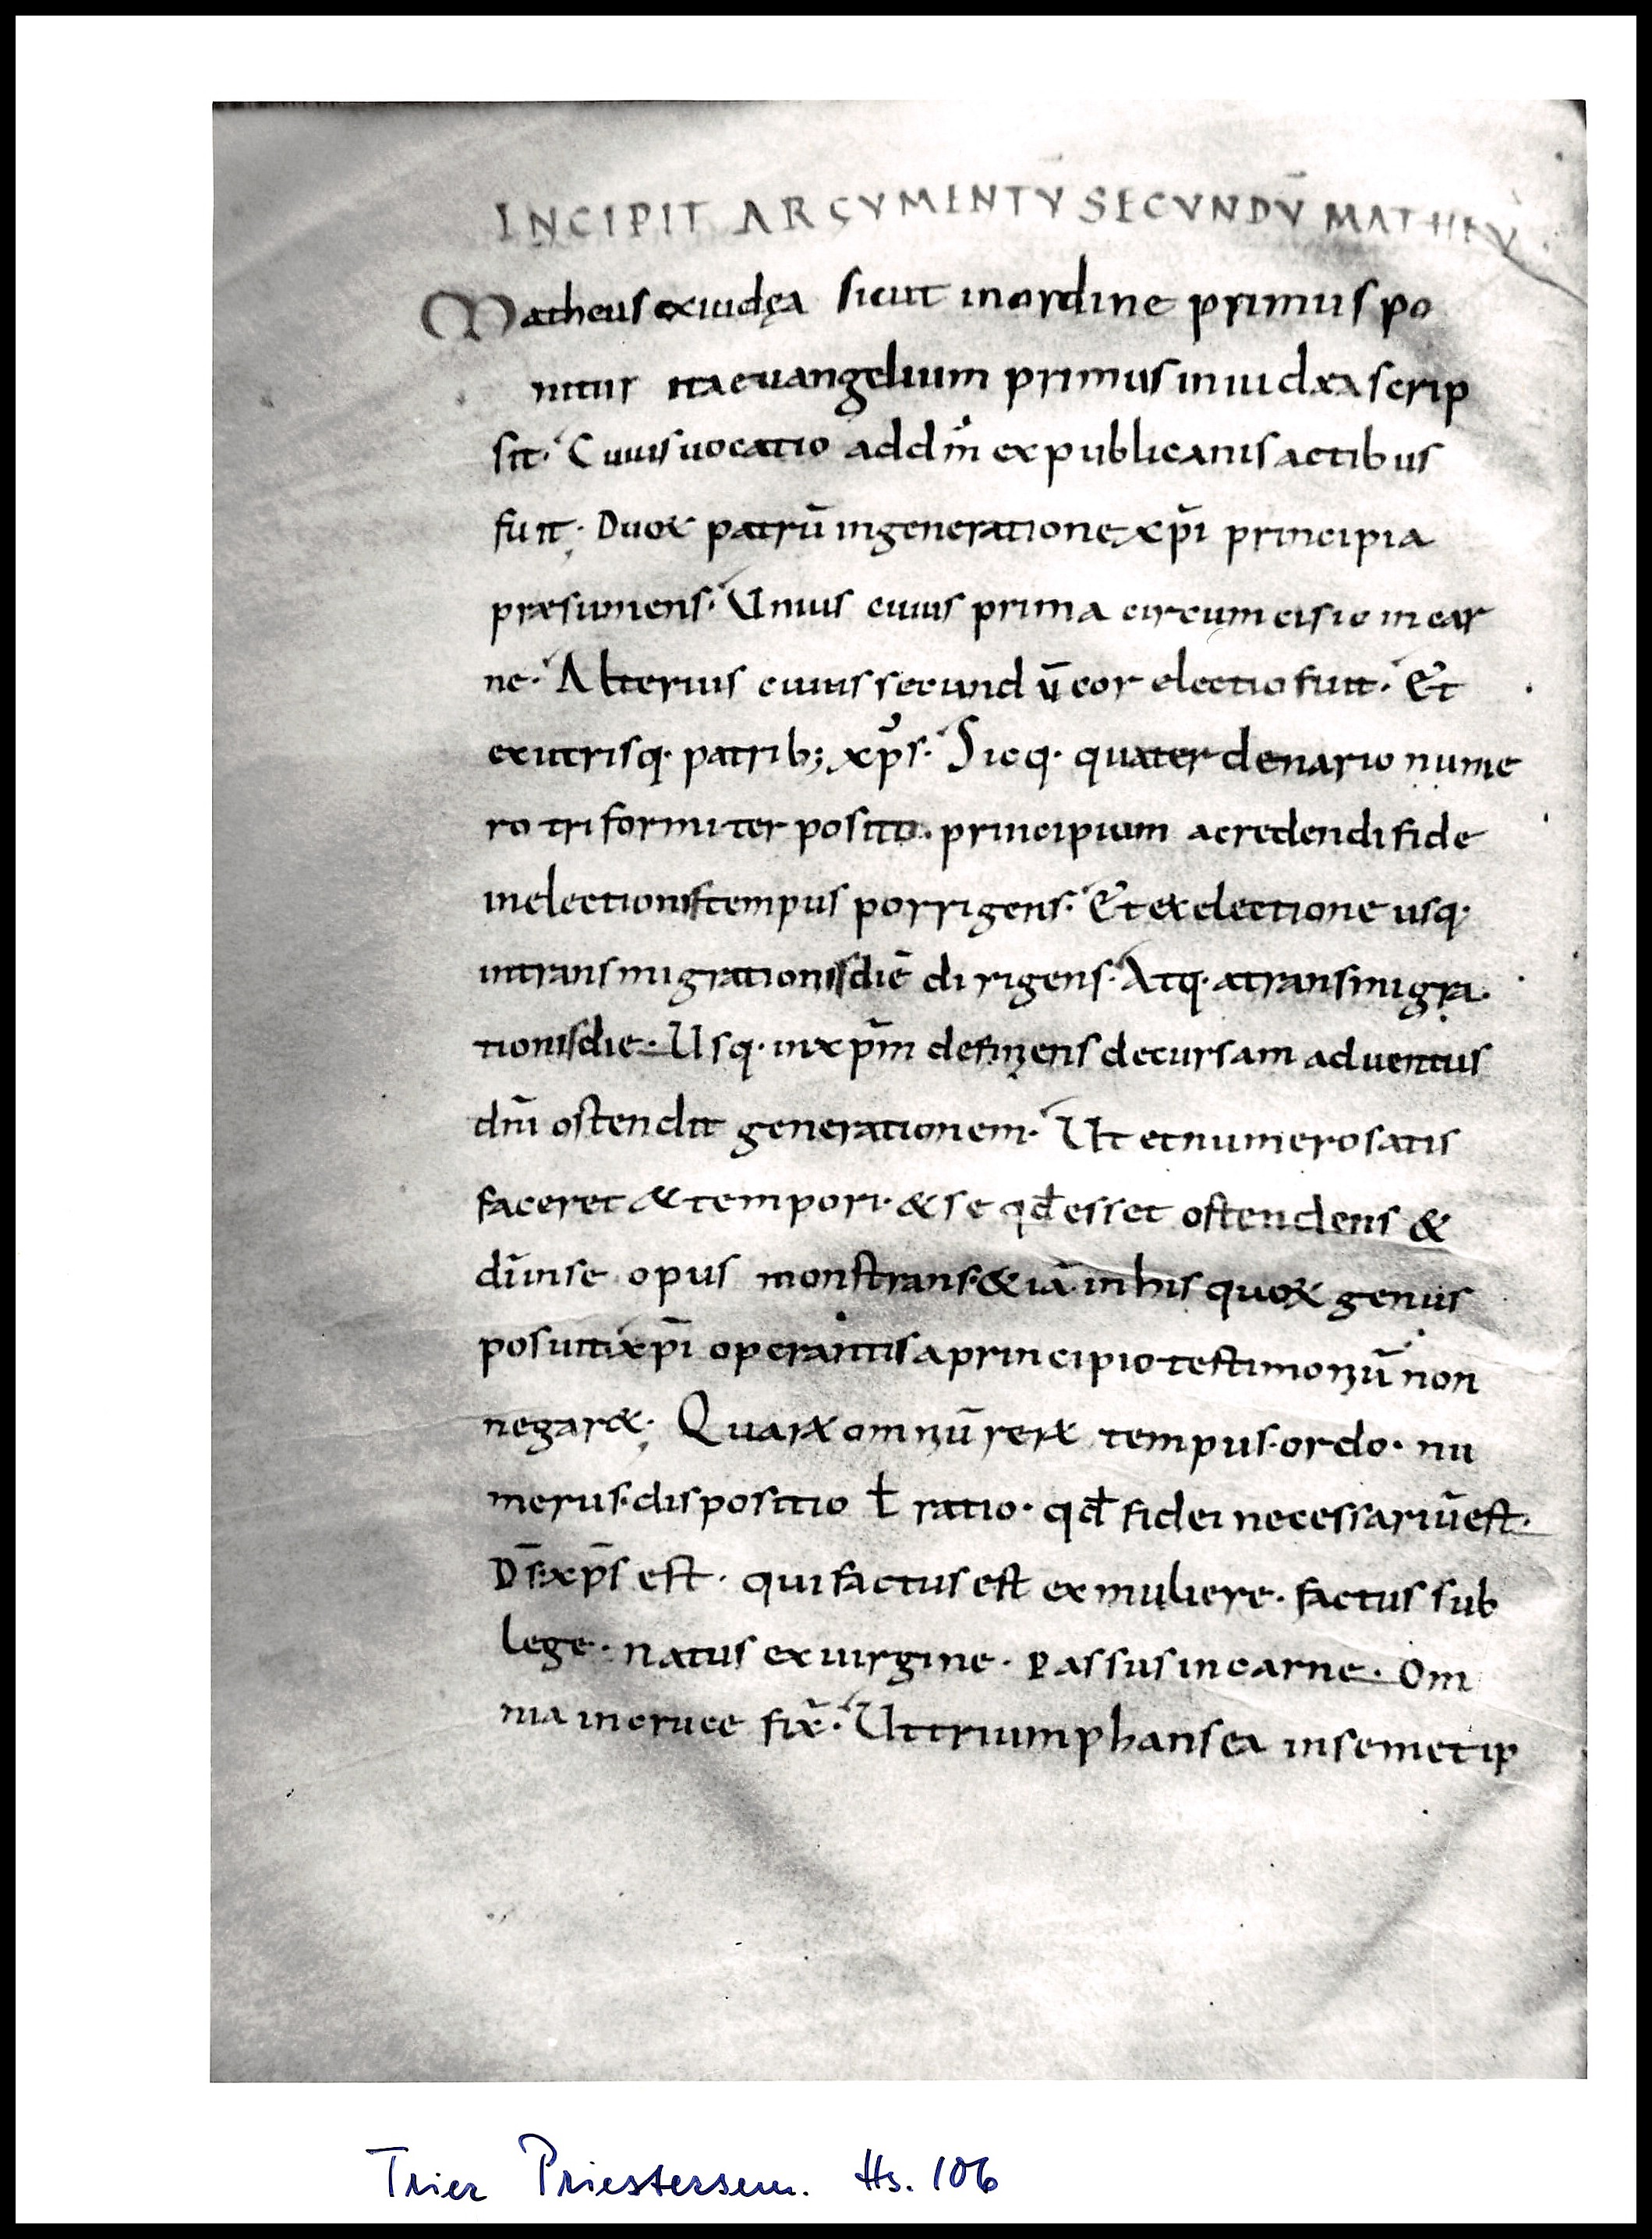 INCIPIT ARGVMENTV̄ SECVNDV̄ MATHEV
Matheus exiudęa sicut inordine primus po
nitur itaeuangelium primus iniudæa scrip
sit· Cuius uocatio addn̄m expublicanis actibus
fuit; Duoꝝ patrū ingeneratione xp̄i principia
præsumens· Unius cuius prima circumcisio in car
ne· Alterius cuius secundū cor electio fuit· Et
exutrisq· patrib; xp̄s· Sicq· quaterdenario nume
ro triformiter posito· principium acredendi fide
inelectionis tempus porrigens· Et exelectione usq·
intransmigrationis diē dirigens· Atq· atransmigra
tionis die· Usq· inxp̄m definiens decursam aduentus
dn̄i ostendit generationem· Ut et numero satis
faceret & tempori· & se qđ esset ostendens &
dī inse opus monstrans· &iā in his quoꝝ genus
posuit xp̄i operantis aprincipio testimoniū non
negar&; Quarꝝ omniū rerꝝ tempus· ordo· nu
merus· dispositio ł ratio· qđ fidei necessariū est·
Ds̄ xp̄s est· qui factus est ex muliere· factus sub
lege· natus exuirgine· passus incarne· Om
nia incruce fix̄· Ut triumphans ea insemetip
Trier Priestersem. Hs. 106